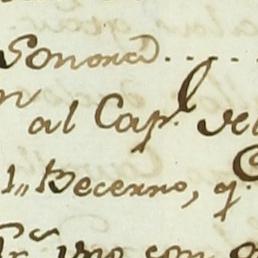 Sonora.....
al Cap.l
1,, Becerro, q.
uno con